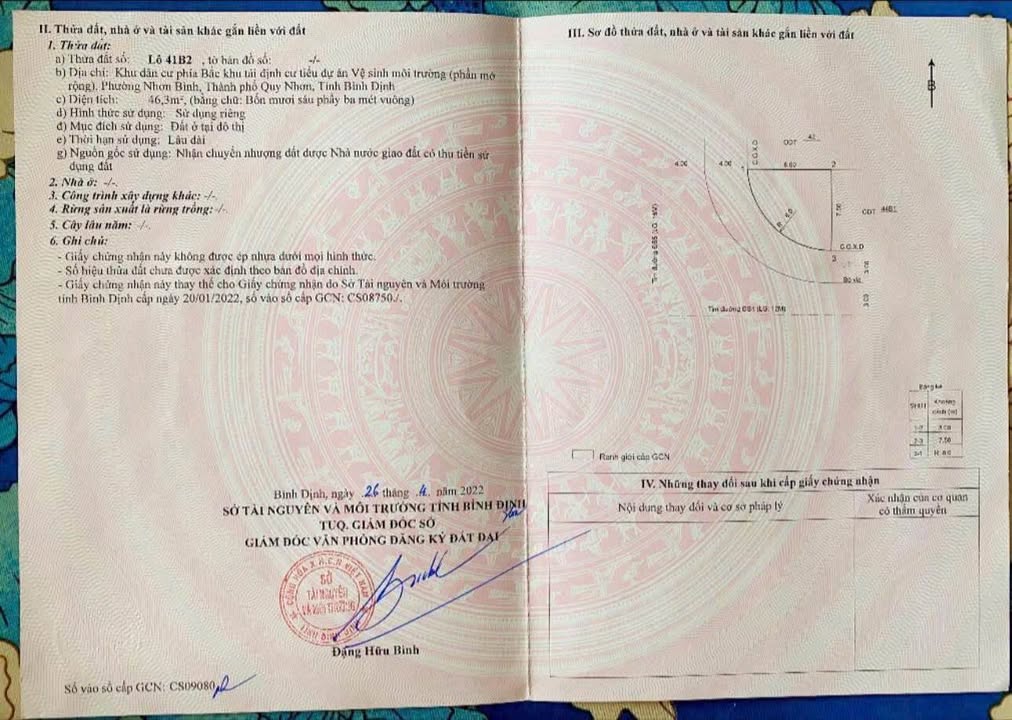 II. Thửa đất, nhà ở và tài sản khác gắn liền với đất
1. Thửa đất:
a) Thửa đất số: Lô 41B2 , tờ bản đồ số: -/-
b) Địa chỉ: Khu dân cư phía Bắc khu tái định cư tiểu dự án Vệ sinh môi trường (phần mở
rộng), Phường Nhơn Bình, Thành phố Quy Nhơn, Tỉnh Bình Định
c) Diện tích: 46,3m², (bằng chữ: Bốn mươi sáu phẩy ba mét vuông)
d) Hình thức sử dụng: Sử dụng riêng
đ) Mục đích sử dụng: Đất ở tại đô thị
e) Thời hạn sử dụng: Lâu dài
g) Nguồn gốc sử dụng: Nhận chuyển nhượng đất được Nhà nước giao đất có thu tiền sử
dụng đất
2. Nhà ở: -/-.
3. Công trình xây dựng khác: -/-.
4. Rừng sản xuất là rừng trồng: -/-.
5. Cây lâu năm: -/-.
6. Ghi chú:
- Giấy chứng nhận này không được ép nhựa dưới mọi hình thức.
- Số hiệu thửa đất chưa được xác định theo bản đồ địa chính.
- Giấy chứng nhận này thay thế cho Giấy chứng nhận do Sở Tài nguyên và Môi trường
tỉnh Bình Định cấp ngày 20/01/2022, số vào sổ cấp GCN: CS08750./.
Bình Định, ngày 26 tháng 4 năm 2022
SỞ TÀI NGUYÊN VÀ MÔI TRƯỜNG TỈNH BÌNH ĐỊNH
TUQ. GIÁM ĐỐC SỞ
GIÁM ĐỐC VĂN PHÒNG ĐĂNG KÝ ĐẤT ĐAI
CỘNG HÒA X.H.C.N VIỆT NAM
SỞ
TÀI NGUYÊN
VÀ MÔI TRƯỜNG
TỈNH BÌNH ĐỊNH
Đặng Hữu Bình
Số vào sổ cấp GCN: CS09080
III. Sơ đồ thửa đất, nhà ở và tài sản khác gắn liền với đất
B
ODT
C.G.X.D
4.00
4.00
1
2
7.50
R
ODT
C.G.X.D
3
Bó vỉa
3.00
3.00
Ranh giới cấp GCN
Bảng kê
1-2
2-3
7.50
3-1
IV. Những thay đổi sau khi cấp giấy chứng nhận
Nội dung thay đổi và cơ sở pháp lý
Xác nhận của cơ quan
có thẩm quyền